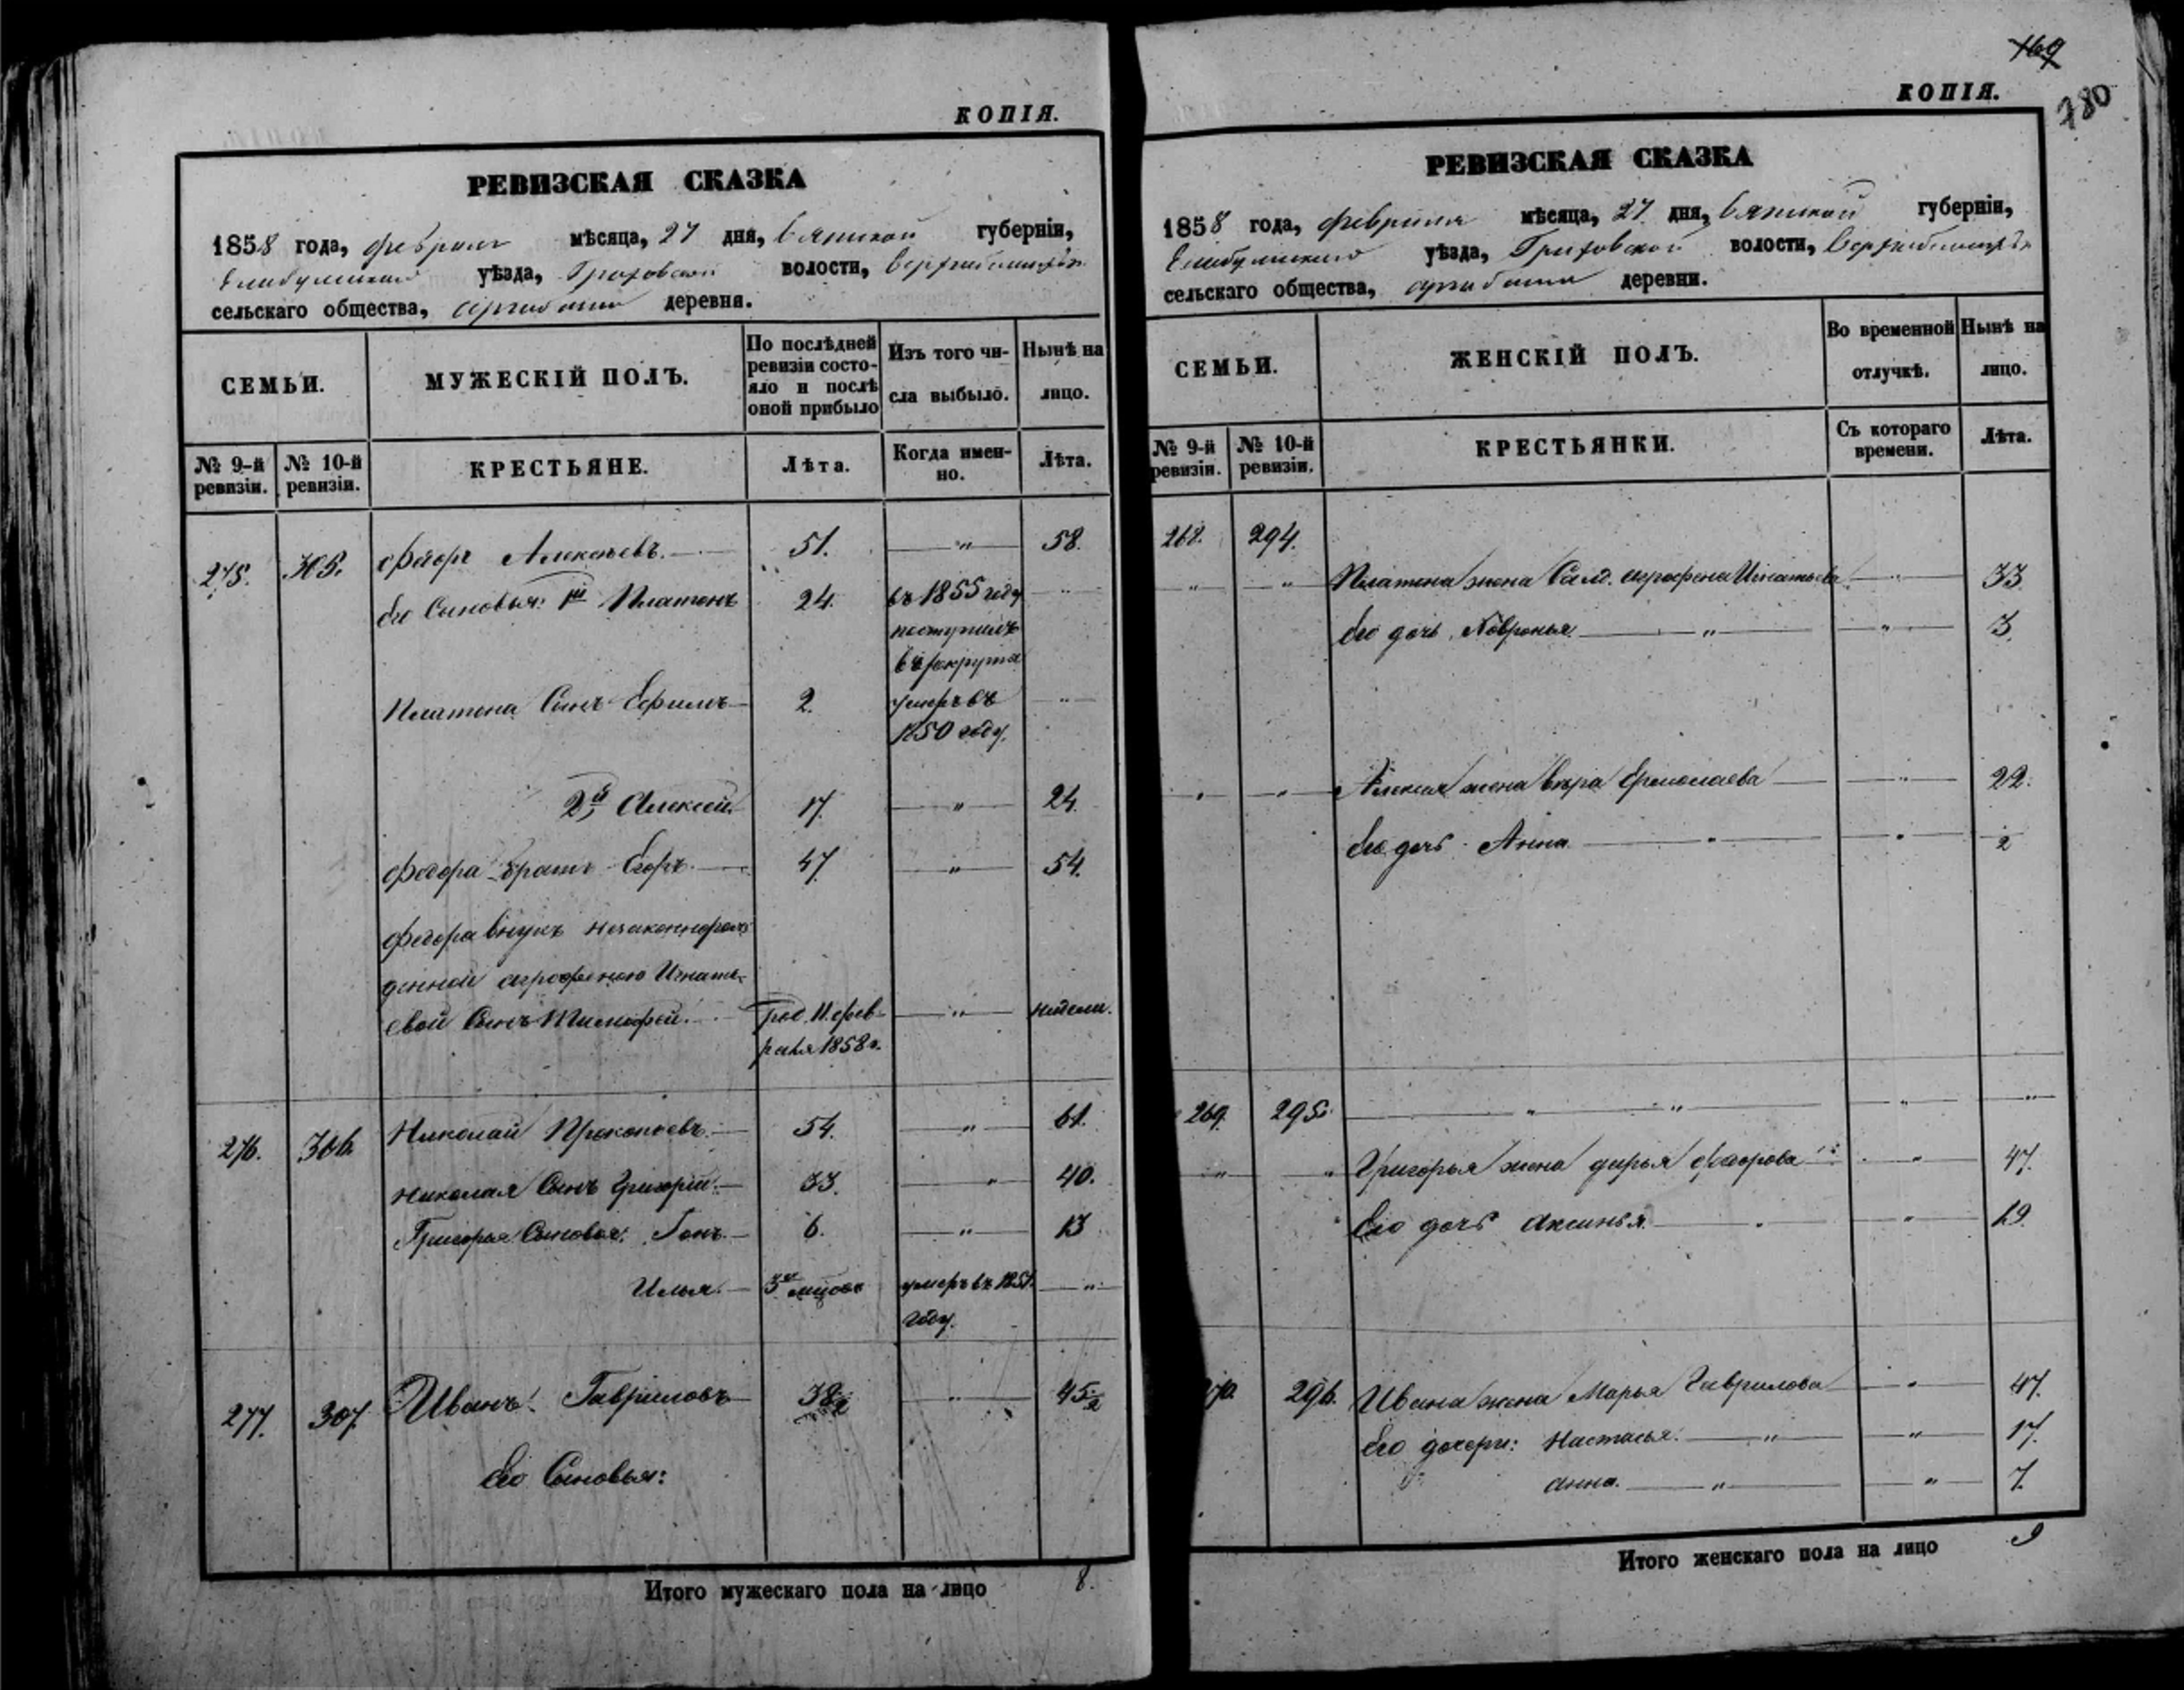 КОПІЯ.
РЕВИЗСКАЯ СКАЗКА
1858 года, февраля мѣсяца, 27 дня, Вятской губерніи,
Елабужскаго уѣзда, Граховской волости,
сельскаго общества, деревня.
СЕМЬИ.
МУЖЕСКІЙ ПОЛЪ.
По послѣдней
ревизіи состо-
яло и послѣ
оной прибыло
Изъ того чи-
сла выбыло.
Нынѣ на
лицо.
№ 9-й
ревизіи.
№ 10-й
ревизіи.
КРЕСТЬЯНЕ.
Лѣта.
Когда имен-
но.
Лѣта.
275. 305. Федоръ Алексѣевъ. 51. " 58.
Его Сыновья: 1й Платонъ 24. въ 1855 году "
поступилъ
въ рекрута
Платона Сынъ Ефимъ 2. умеръ въ "
1850 году.
2й Алексей. 17. " 24.
Федора братъ Егоръ. 47. " 54.
Федора внукъ незаконнорож
денной Агрофеною Игнать-
евой Сынъ Тимофей. Род. 11. фев- " недели.
раля 1858 г.
276. 306. Николай Прокопьевъ. 54. " 61.
Николая Сынъ Григорій. 33. " 40.
Григорья Сыновья: 6. " 13
Илья. 3хъ умеръ въ 1851. "
году.
277. 307. Иванъ Гавриловъ 38½ " 45½
Его Сыновья:
Итого мужескаго пола на лицо 8.
169
780
КОПІЯ.
РЕВИЗСКАЯ СКАЗКА
1858 года, февраля мѣсяца, 27 дня, Вятской губерніи,
Елабужскаго уѣзда, Граховской волости,
сельскаго общества, деревни.
СЕМЬИ.
ЖЕНСКІЙ ПОЛЪ.
Во временной
отлучкѣ.
Нынѣ на
лицо.
№ 9-й
ревизіи.
№ 10-й
ревизіи.
КРЕСТЬЯНКИ.
Съ котораго
времени.
Лѣта.
268. 294.
" " Платона жена Салд. Агрофена Игнатьева " 33
Его дочь Февронья. " " 3
" " Алексея жена Вѣра Ермолаева " 22.
Его дочь Анна " " 2
269. 295. " " " "
" " Григорья жена Дарья Федорова " 47.
Его дочь Аксинья. " " 19.
270. 296. Ивана жена Марья Гаврилова " 47.
Его дочери: Настасья. " " 17.
Анна. " " 7.
Итого женскаго пола на лицо 9